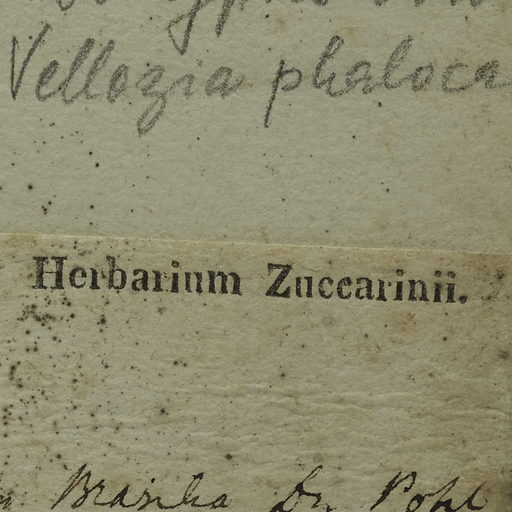 Vellozia phaloca
Herbarium Zuccarinii.
Brasilia Dr. Pohl